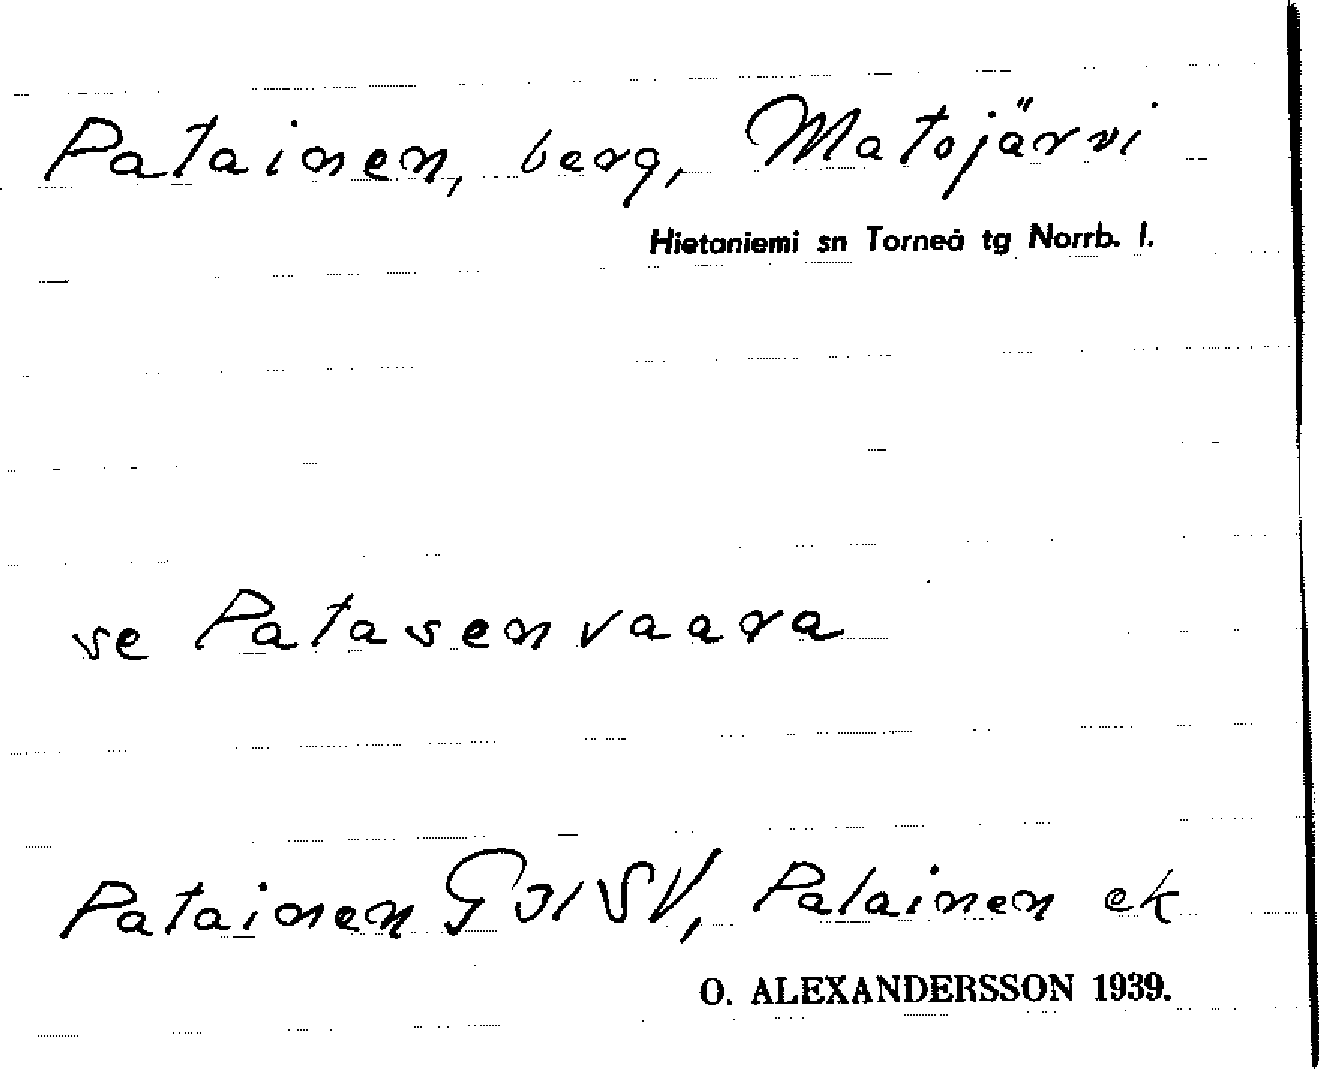 Patainen, berg, Matojärvi
Hietaniemi sn Torneå tg Norrb. l.
se Patasenvaara
Patainen G31SV, Patainen ek
O. ALEXANDERSSON 1939.